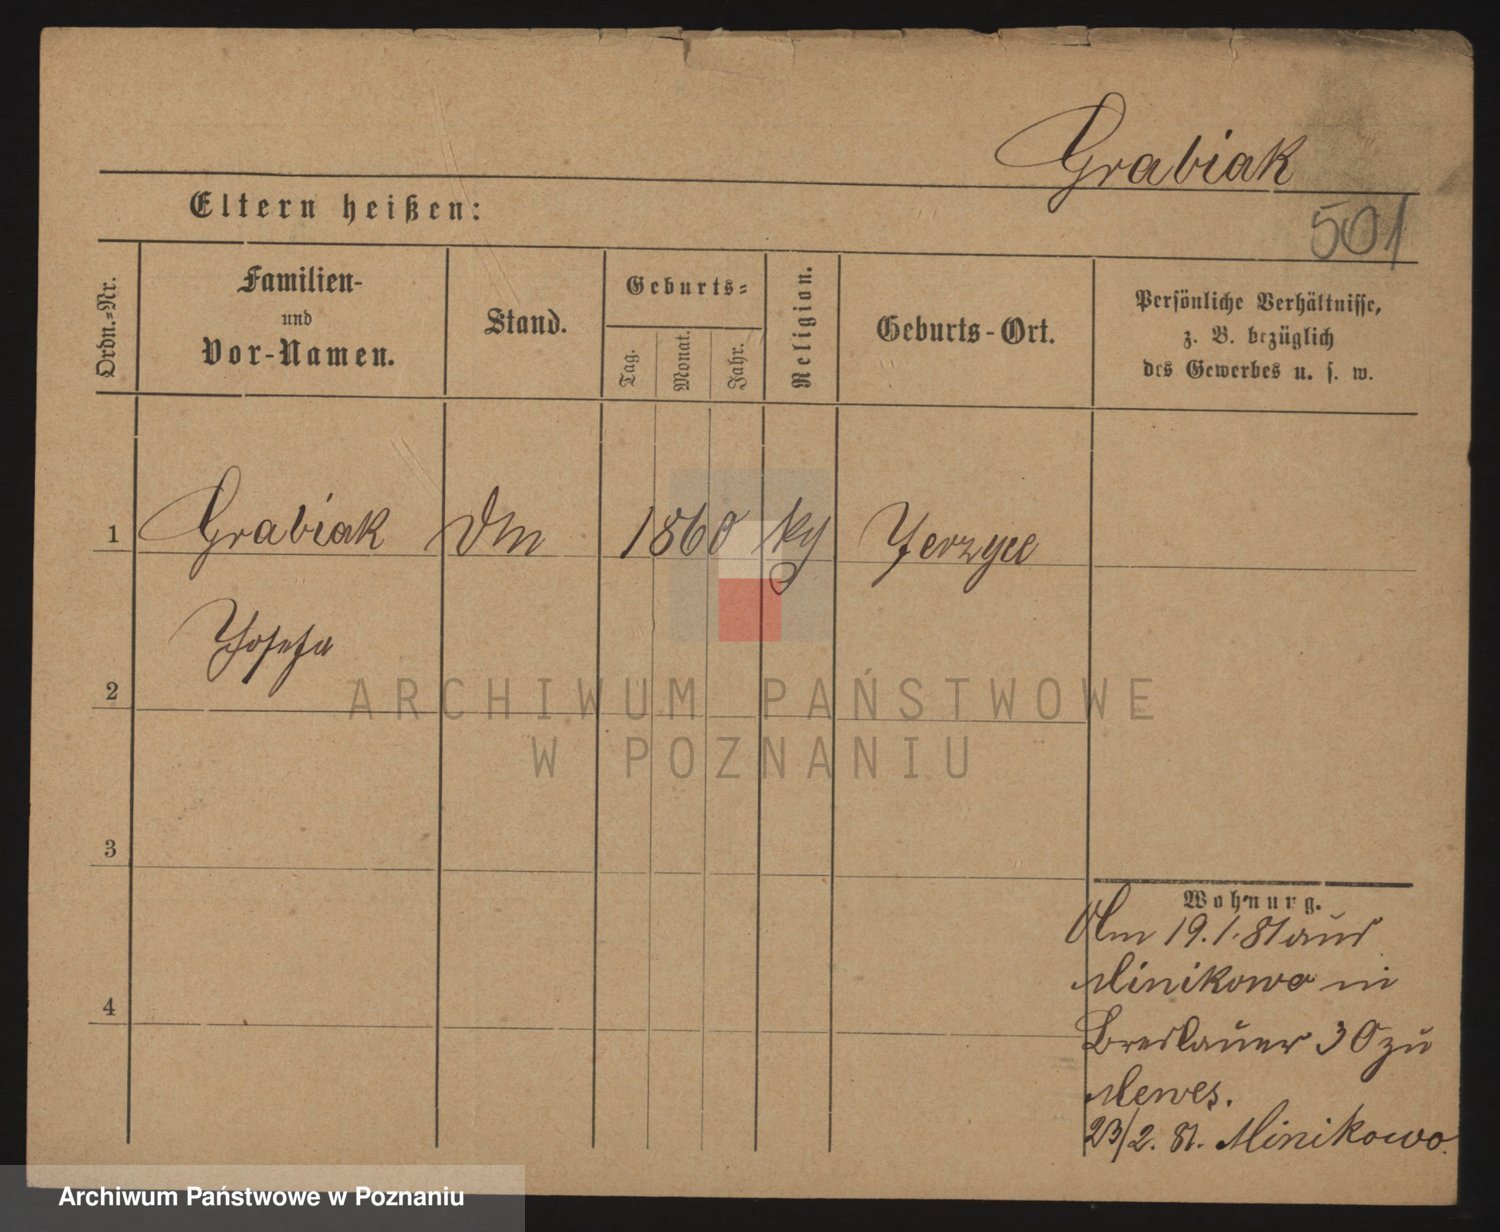 Grabiak
Eltern heißen:
501
Ordn.-Nr.
Familien-
und
Vor-Namen.
Stand.
Geburts-
Tag.
Monat.
Jahr.
Religion.
Geburts-Ort.
Persönliche Verhältnisse,
z. B. bezüglich
des Gewerbes u. s. w.
1 Grabiak Dm 1860 Jerzyce
Josefa
2
3
4
ARCHIWUM PAŃSTWOWE
W POZNANIU
Wohnung.
Am 19.1.81 aus
Minikowo in
Breslauer 30 zu
Mewes.
23/2. 81. Minikowo.
Archiwum Państwowe w Poznaniu